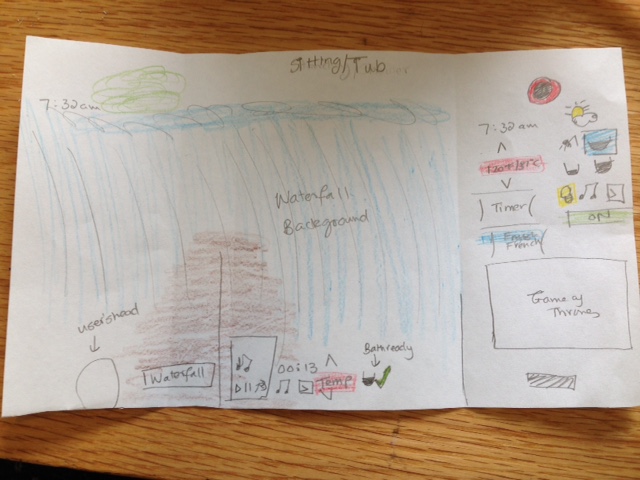 Sitting/Tub
7:32am
Waterfall
Background
user's head
Waterfall
00:13
Temp
Bath ready
7:32am
Timer
French
ON
Game of
Thrones